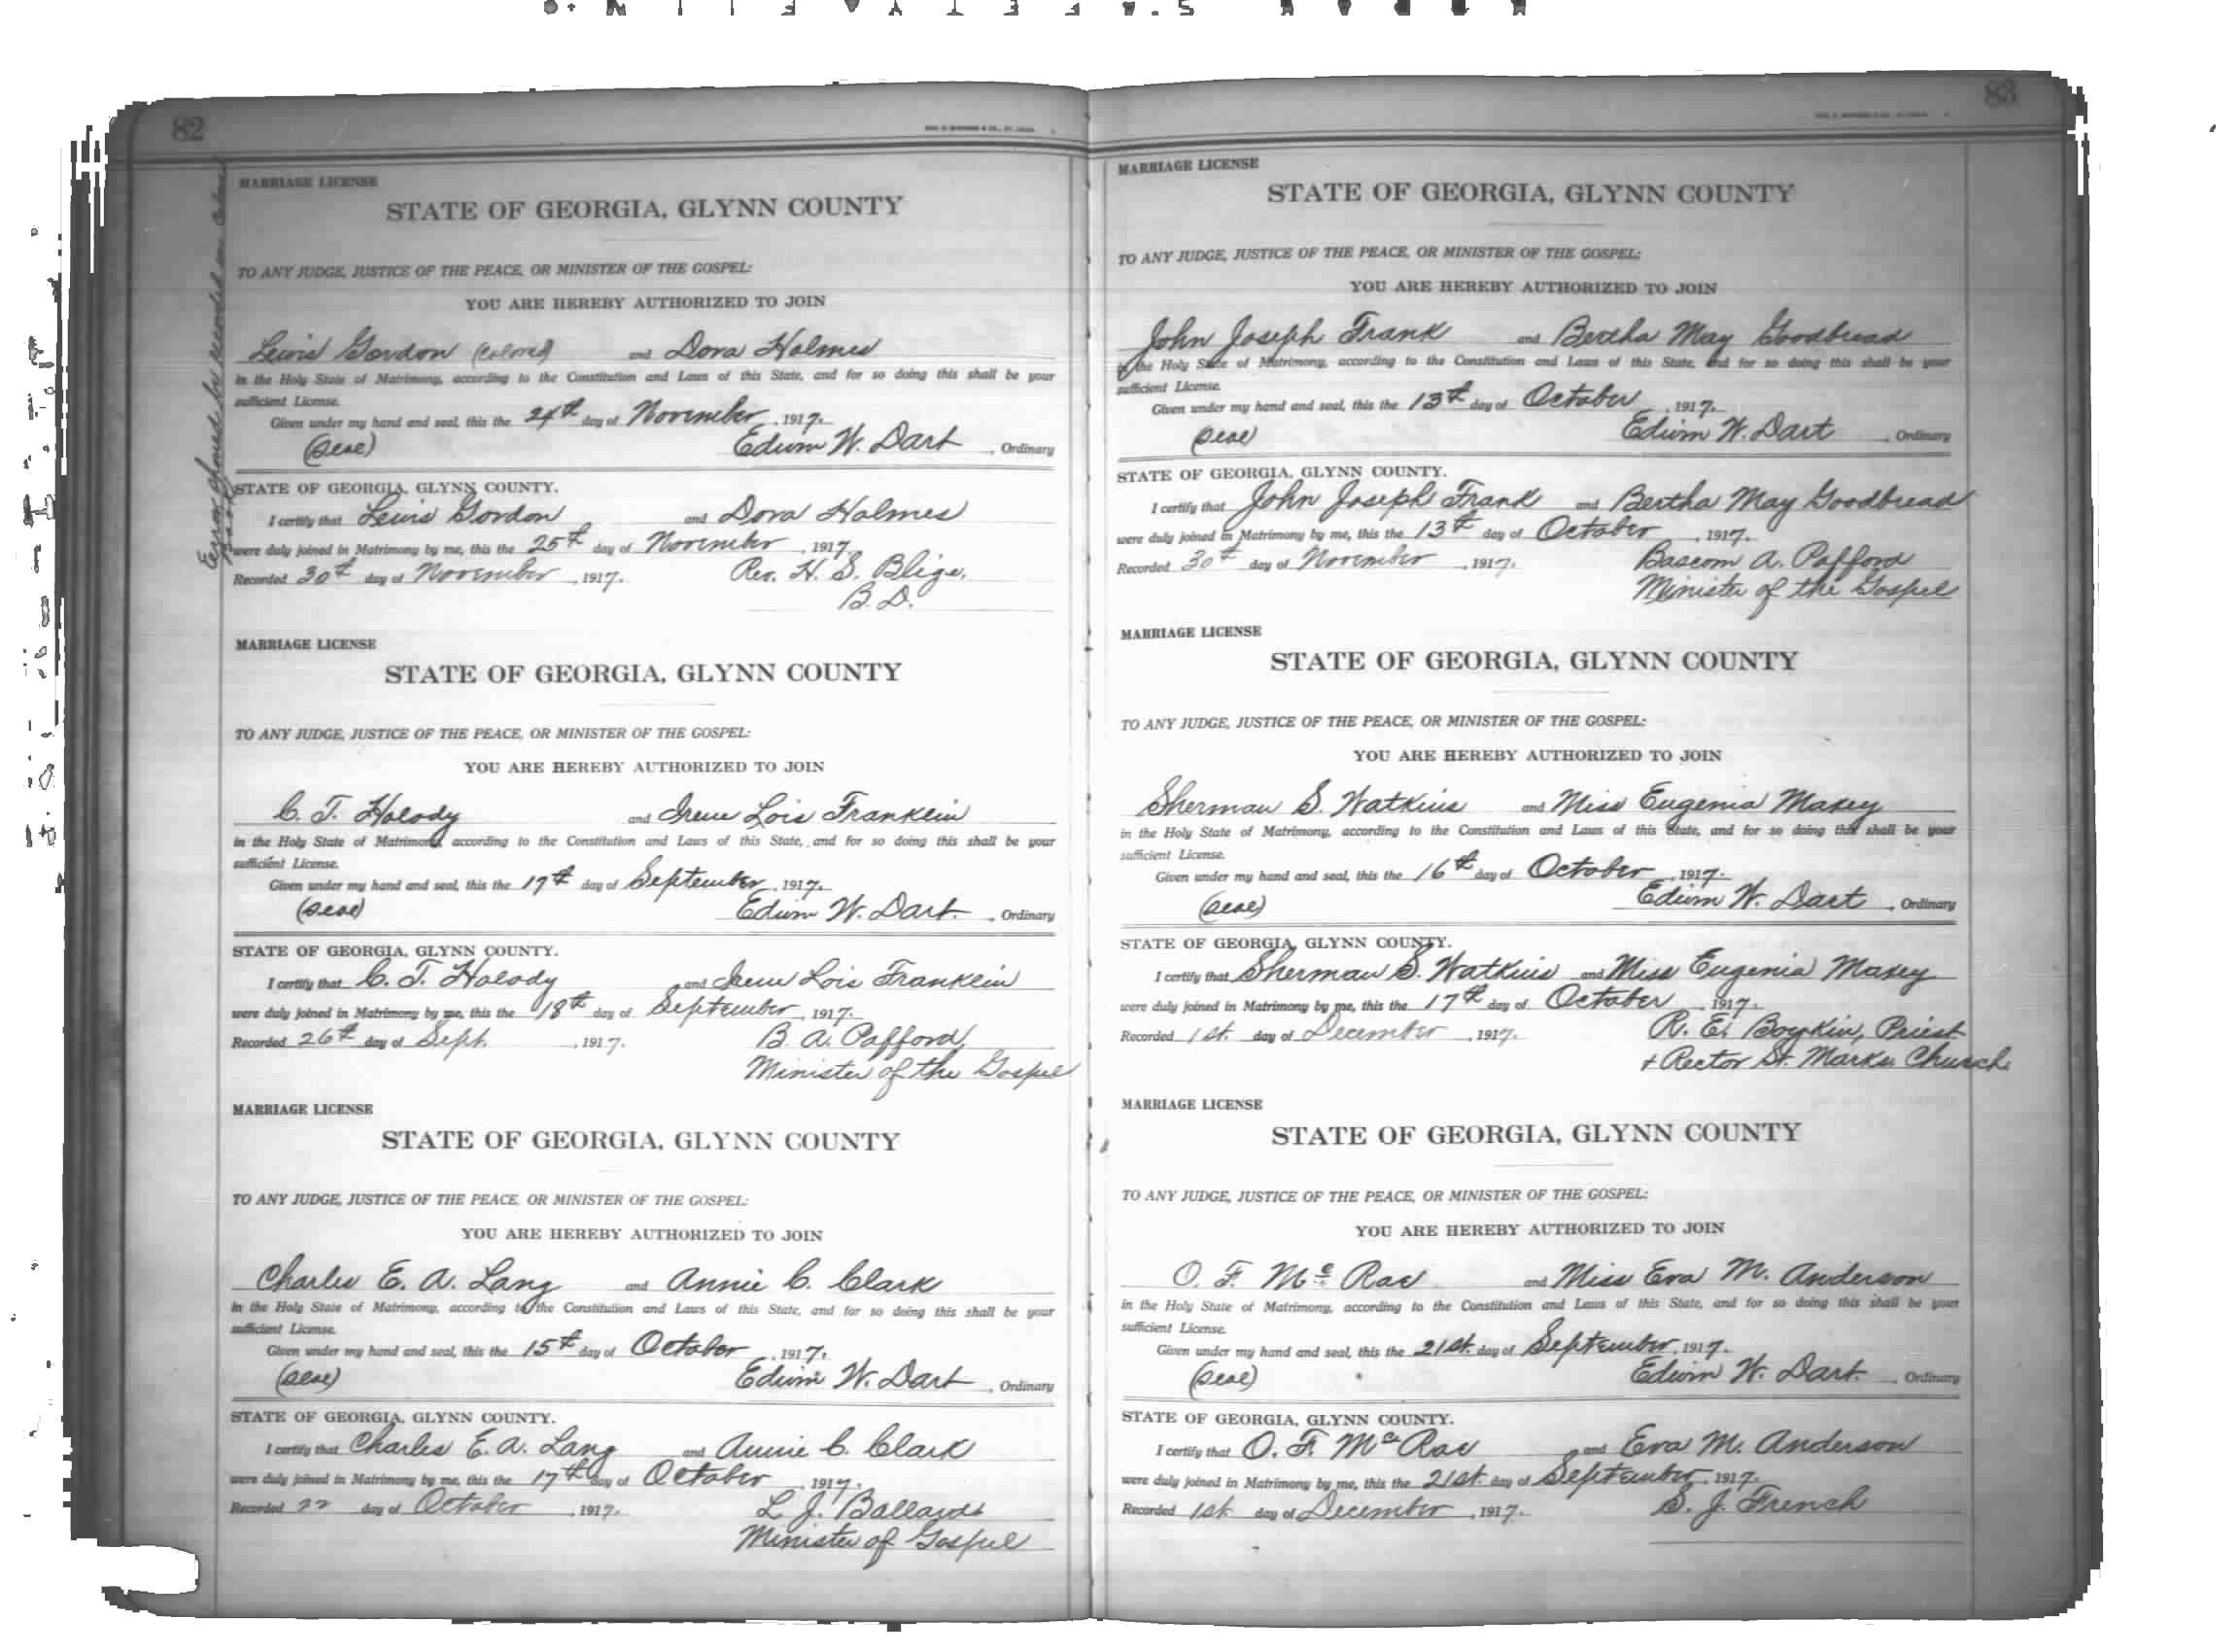 82
MARRIAGE LICENSE
STATE OF GEORGIA, GLYNN COUNTY
TO ANY JUDGE, JUSTICE OF THE PEACE, OR MINISTER OF THE GOSPEL:
YOU ARE HEREBY AUTHORIZED TO JOIN
Lewis Gordon (Colored) and Dora Holmes
in the Holy State of Matrimony, according to the Constitution and Laws of this State, and for so doing this shall be your
sufficient License.
Given under my hand and seal, this the 24th day of November, 1917.
(Seal) Edwin W. Dart, Ordinary
STATE OF GEORGIA, GLYNN COUNTY.
I certify that Lewis Gordon and Dora Holmes
were duly joined in Matrimony by me, this the 25th day of November, 1917.
Recorded 30th day of November, 1917. Rev. H. S. Blige,
B. D.
Error should be recorded in
MARRIAGE LICENSE
STATE OF GEORGIA, GLYNN COUNTY
TO ANY JUDGE, JUSTICE OF THE PEACE, OR MINISTER OF THE GOSPEL:
YOU ARE HEREBY AUTHORIZED TO JOIN
C. T. Holody and Irene Lois Franklin
in the Holy State of Matrimony, according to the Constitution and Laws of this State, and for so doing this shall be your
sufficient License.
Given under my hand and seal, this the 17th day of September, 1917.
(Seal) Edwin W. Dart, Ordinary
STATE OF GEORGIA, GLYNN COUNTY.
I certify that C. T. Holody and Irene Lois Franklin
were duly joined in Matrimony by me, this the 18th day of September, 1917.
Recorded 26th day of Sept. , 1917. B. A. Pafford,
Minister of the Gospel
MARRIAGE LICENSE
STATE OF GEORGIA, GLYNN COUNTY
TO ANY JUDGE, JUSTICE OF THE PEACE, OR MINISTER OF THE GOSPEL:
YOU ARE HEREBY AUTHORIZED TO JOIN
Charles E. A. Lang and Annie C. Clark
in the Holy State of Matrimony, according to the Constitution and Laws of this State, and for so doing this shall be your
sufficient License.
Given under my hand and seal, this the 15th day of October, 1917.
(Seal) Edwin W. Dart, Ordinary
STATE OF GEORGIA, GLYNN COUNTY.
I certify that Charles E. A. Lang and Annie C. Clark
were duly joined in Matrimony by me, this the 17th day of October, 1917.
Recorded 22 day of October, 1917. L. J. Ballard
Minister of Gospel
83
MARRIAGE LICENSE
STATE OF GEORGIA, GLYNN COUNTY
TO ANY JUDGE, JUSTICE OF THE PEACE, OR MINISTER OF THE GOSPEL:
YOU ARE HEREBY AUTHORIZED TO JOIN
John Joseph Frank and Bertha May Goodbread
in the Holy State of Matrimony, according to the Constitution and Laws of this State, and for so doing this shall be your
sufficient License.
Given under my hand and seal, this the 13th day of October, 1917.
(Seal) Edwin W. Dart, Ordinary
STATE OF GEORGIA, GLYNN COUNTY.
I certify that John Joseph Frank and Bertha May Goodbread
were duly joined in Matrimony by me, this the 13th day of October, 1917.
Recorded 30th day of November, 1917. Bascom A. Pafford
Minister of the Gospel
MARRIAGE LICENSE
STATE OF GEORGIA, GLYNN COUNTY
TO ANY JUDGE, JUSTICE OF THE PEACE, OR MINISTER OF THE GOSPEL:
YOU ARE HEREBY AUTHORIZED TO JOIN
Sherman S. Watkins and Miss Eugenia Maxey
in the Holy State of Matrimony, according to the Constitution and Laws of this State, and for so doing this shall be your
sufficient License.
Given under my hand and seal, this the 16th day of October, 1917.
(Seal) Edwin W. Dart, Ordinary
STATE OF GEORGIA, GLYNN COUNTY.
I certify that Sherman S. Watkins and Miss Eugenia Maxey
were duly joined in Matrimony by me, this the 17th day of October, 1917.
Recorded 1st. day of December, 1917. R. E. Boykin, Priest
+ Rector St. Marks Church.
MARRIAGE LICENSE
STATE OF GEORGIA, GLYNN COUNTY
TO ANY JUDGE, JUSTICE OF THE PEACE, OR MINISTER OF THE GOSPEL:
YOU ARE HEREBY AUTHORIZED TO JOIN
O. F. McRae and Miss Eva M. Anderson
in the Holy State of Matrimony, according to the Constitution and Laws of this State, and for so doing this shall be your
sufficient License.
Given under my hand and seal, this the 21st. day of September, 1917.
(Seal) Edwin W. Dart. , Ordinary
STATE OF GEORGIA, GLYNN COUNTY.
I certify that O. F. McRae and Eva M. Anderson
were duly joined in Matrimony by me, this the 21st. day of September, 1917.
Recorded 1st. day of December, 1917. S. J. French